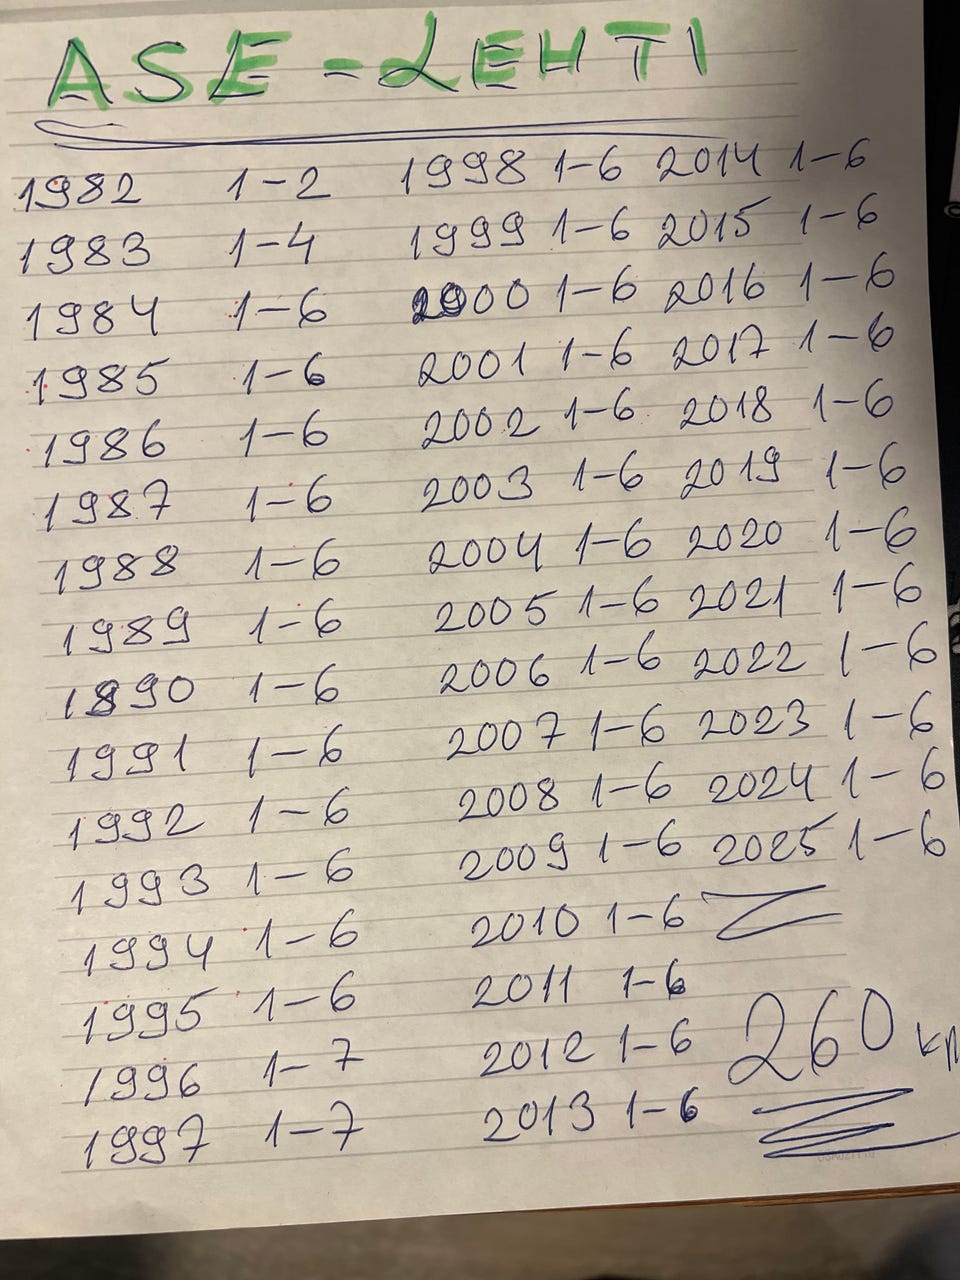 ASE-LEHTI
1982 1-2 1998 1-6 2014 1-6
1983 1-4 1999 1-6 2015 1-6
1984 1-6 2000 1-6 2016 1-6
1985 1-6 2001 1-6 2017 1-6
1986 1-6 2002 1-6 2018 1-6
1987 1-6 2003 1-6 2019 1-6
1988 1-6 2004 1-6 2020 1-6
1989 1-6 2005 1-6 2021 1-6
1990 1-6 2006 1-6 2022 1-6
1991 1-6 2007 1-6 2023 1-6
1992 1-6 2008 1-6 2024 1-6
1993 1-6 2009 1-6 2025 1-6
1994 1-6 2010 1-6
1995 1-6 2011 1-6
1996 1-7 2012 1-6
1997 1-7 2013 1-6
260 kpl